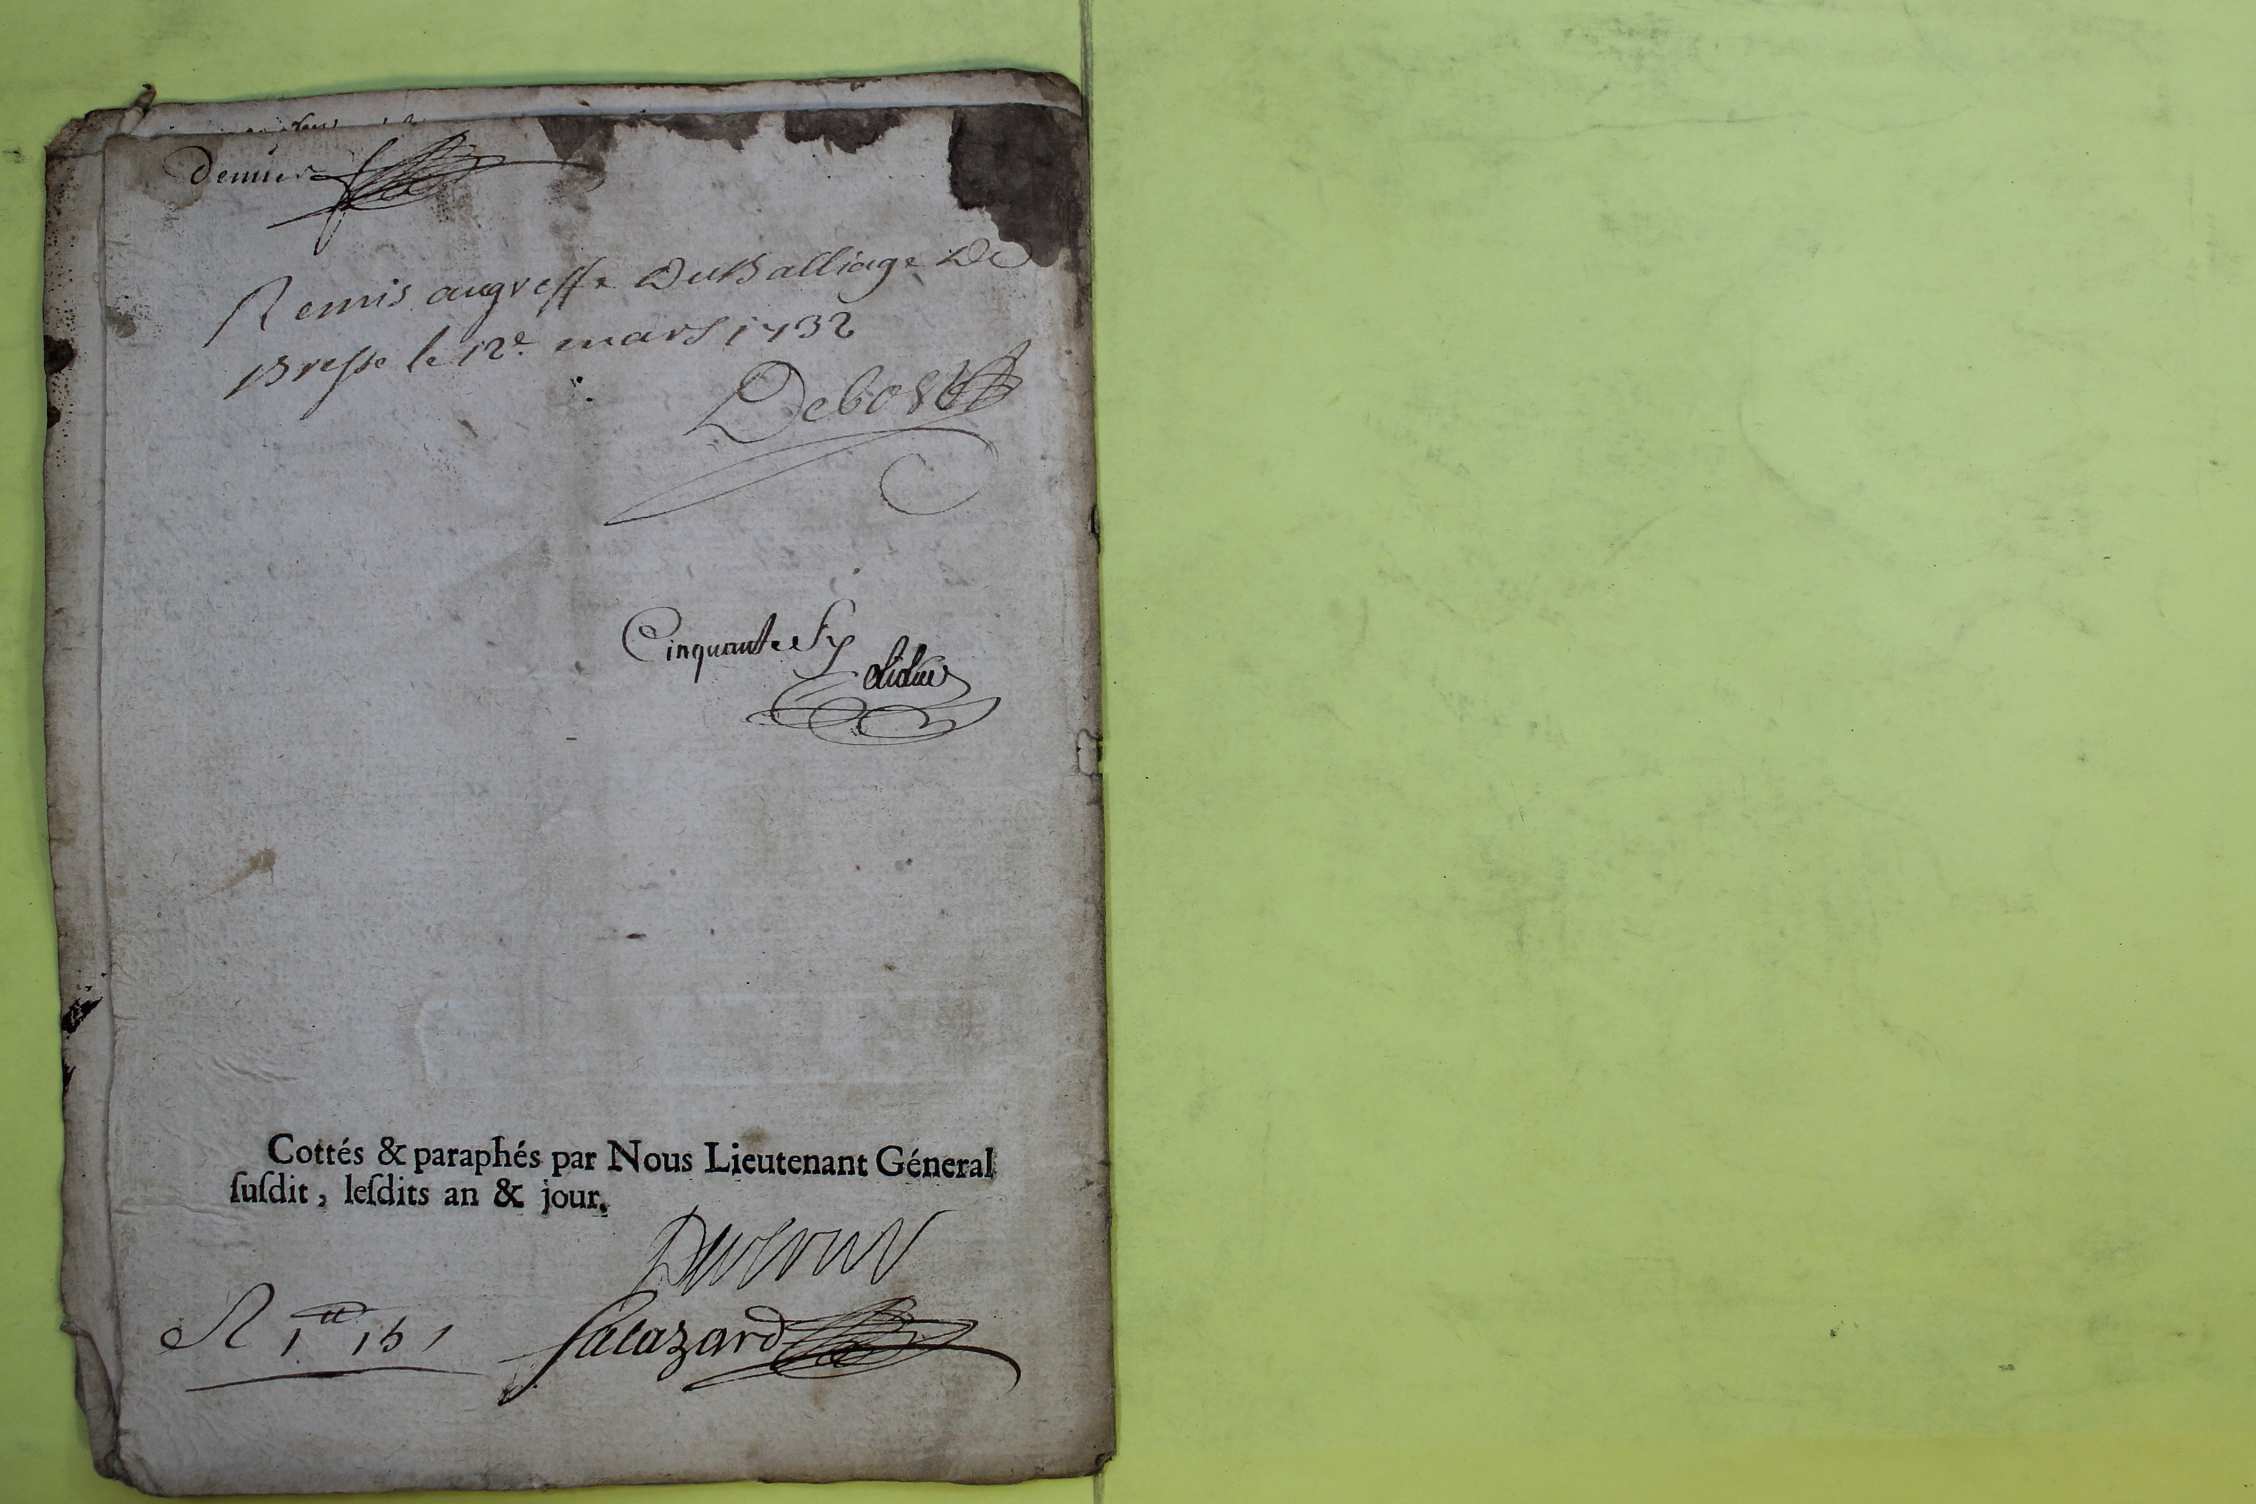 dernier
Remis au greffe du Balliage de
Bresse le 12e. mars 1732
Debost
Cinquante six
Cottés & paraphés par Nous Lieutenant Géneral
ſuſdit, leſdits an & jour.
R 1tt 15 s
Salazard